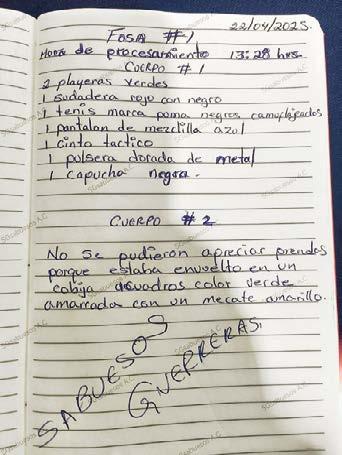 22/04/2025.
FOSA #1
Hora de procesamiento 13:28 hrs.
CUERPO #1
2 playeras verdes
1 sudadera rojo con negro
1 tenis marca poma negros camuflajeados
1 pantalan de mezclilla azul
1 cinto tactico
1 pulsera dorada de metal
1 capucha negra.
CUERPO #2
No se pudieron apreciar prendas
porque estaba envuelto en un
cobija acuadros color verde
amarrada con un mecate amarillo.
SABUESOS
GUERRERAS.